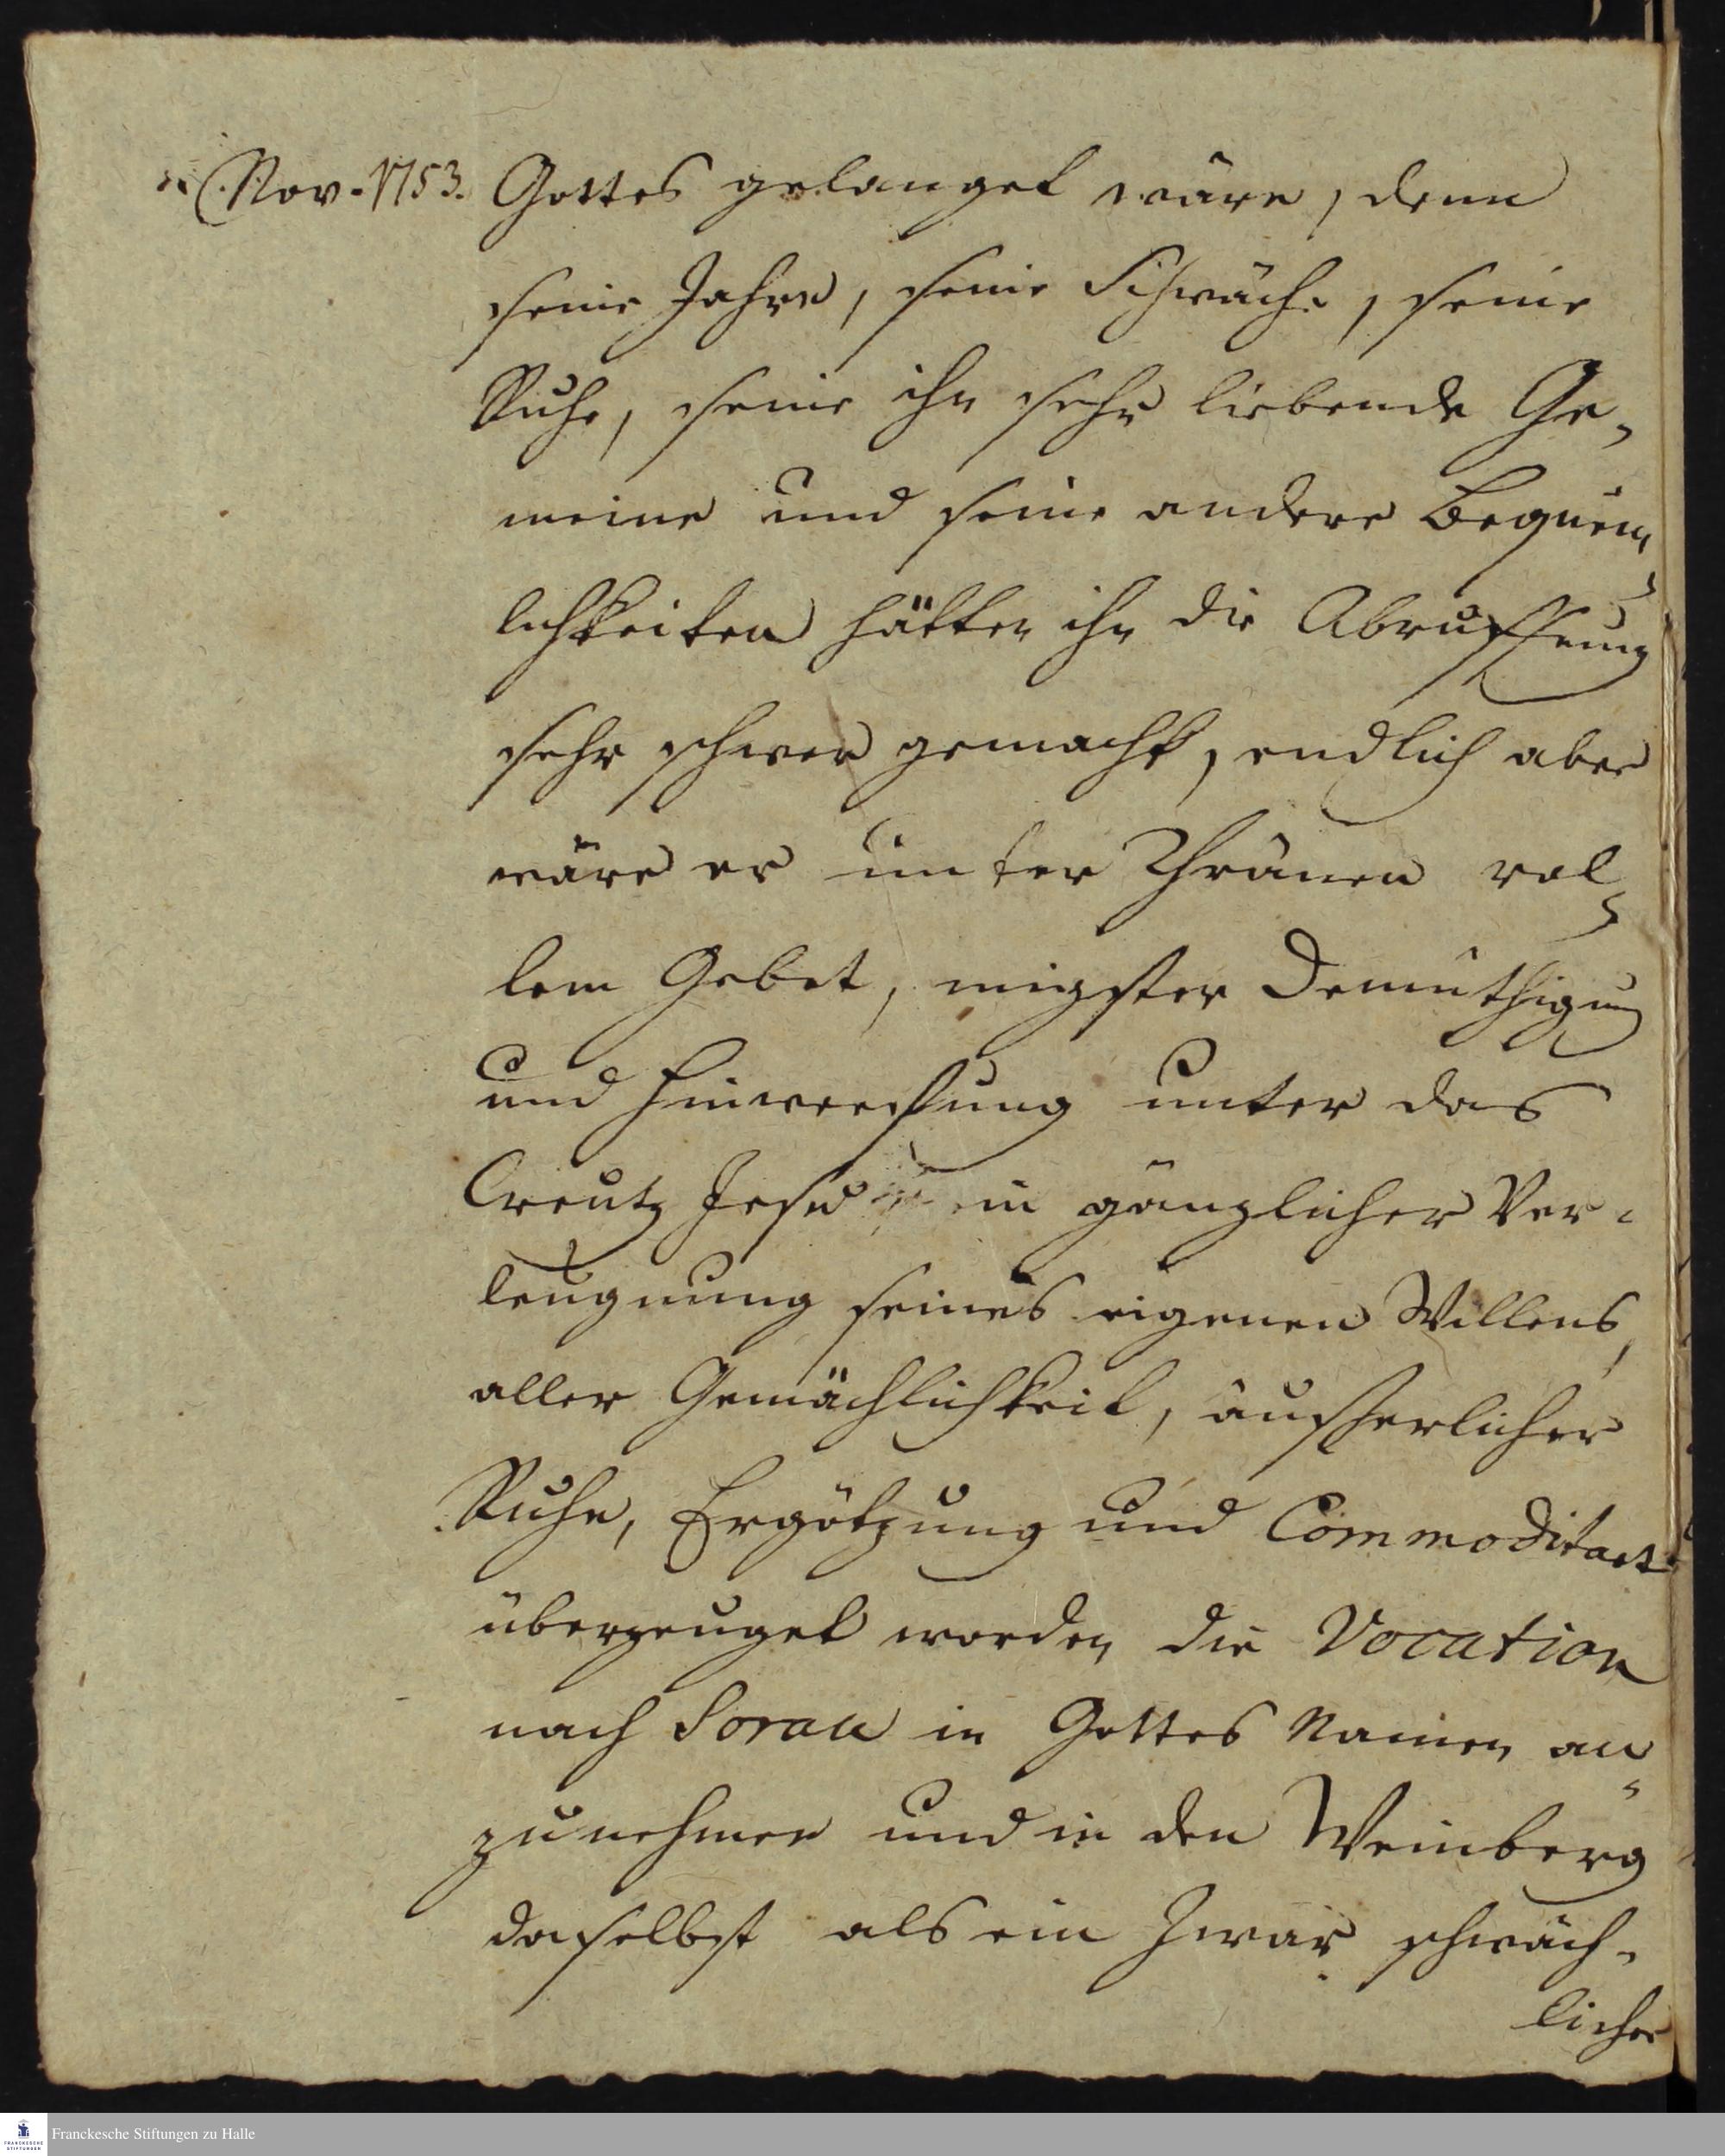 Nov. 1753.
Gottes gelanget wäre, denn
seine Jahre, seine Schwäche, seine
Ruhe, seine ihn sehr liebende Ge-
meine und seine andere Bequem-
lichkeiten hätten ihn die Abruffung
sehr schwer gemacht, endlich aber
wäre er unter Thränen vol-
lem Gebet, Demüthigung
und Hinwerffung unter das
Creutz Jesu in gänzlicher Ver-
leugnung seines eigenen Willens,
aller Gemächlichkeit, äusserlicher
Ruhe, Ergötzung und Commoditaet
überzeuget worden die Vocation
nach Sorau in Gottes Namen an-
zunehmen und in den Weinberg
daselbst als ein zwar schwäch-
licher
Franckesche Stiftungen zu Halle